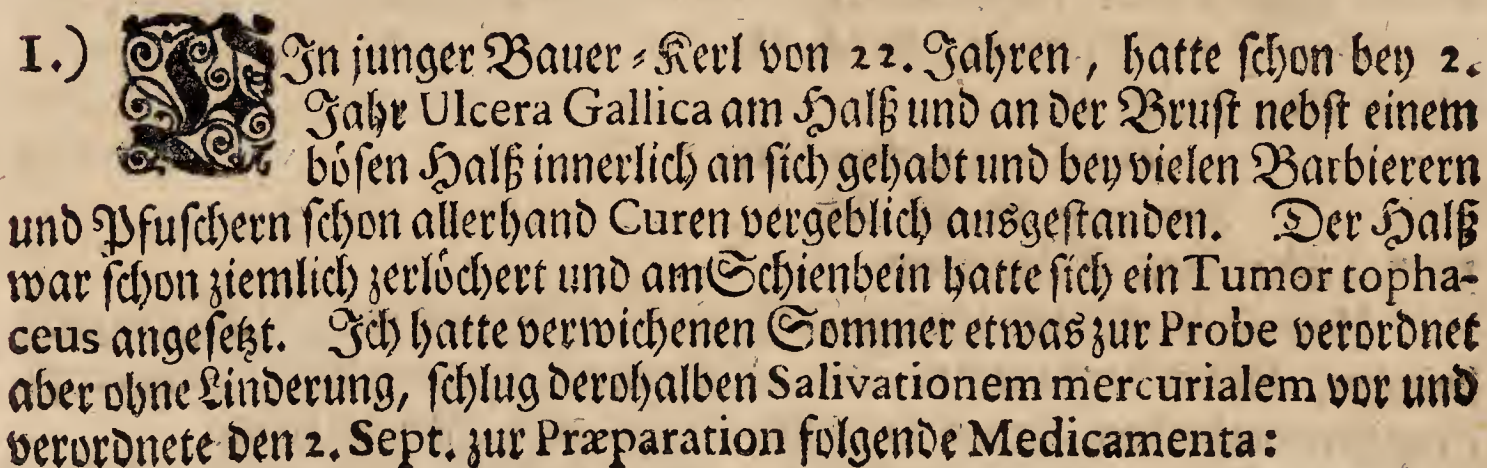 I.) EJn junger Bauer-Kerl von 22. Jahren, hatte schon bey 2.
Jahr Ulcera Gallica am Halß und an der Brust nebst einem
bösen Halß innerlich an sich gehabt und bey vielen Barbierern
und Pfuschern schon allerhand Curen vergeblich ausgestanden. Der Halß
war schon ziemlich zerlöchert und am Schienbein hatte sich ein Tumor topha-
ceus angesetzt. Ich hatte verwichenen Sommer etwas zur Probe verordnet
aber ohne Linderung, schlug derohalben Salivationem mercurialem vor und
verordnete den 2. Sept. zur Præparation folgende Medicamenta: